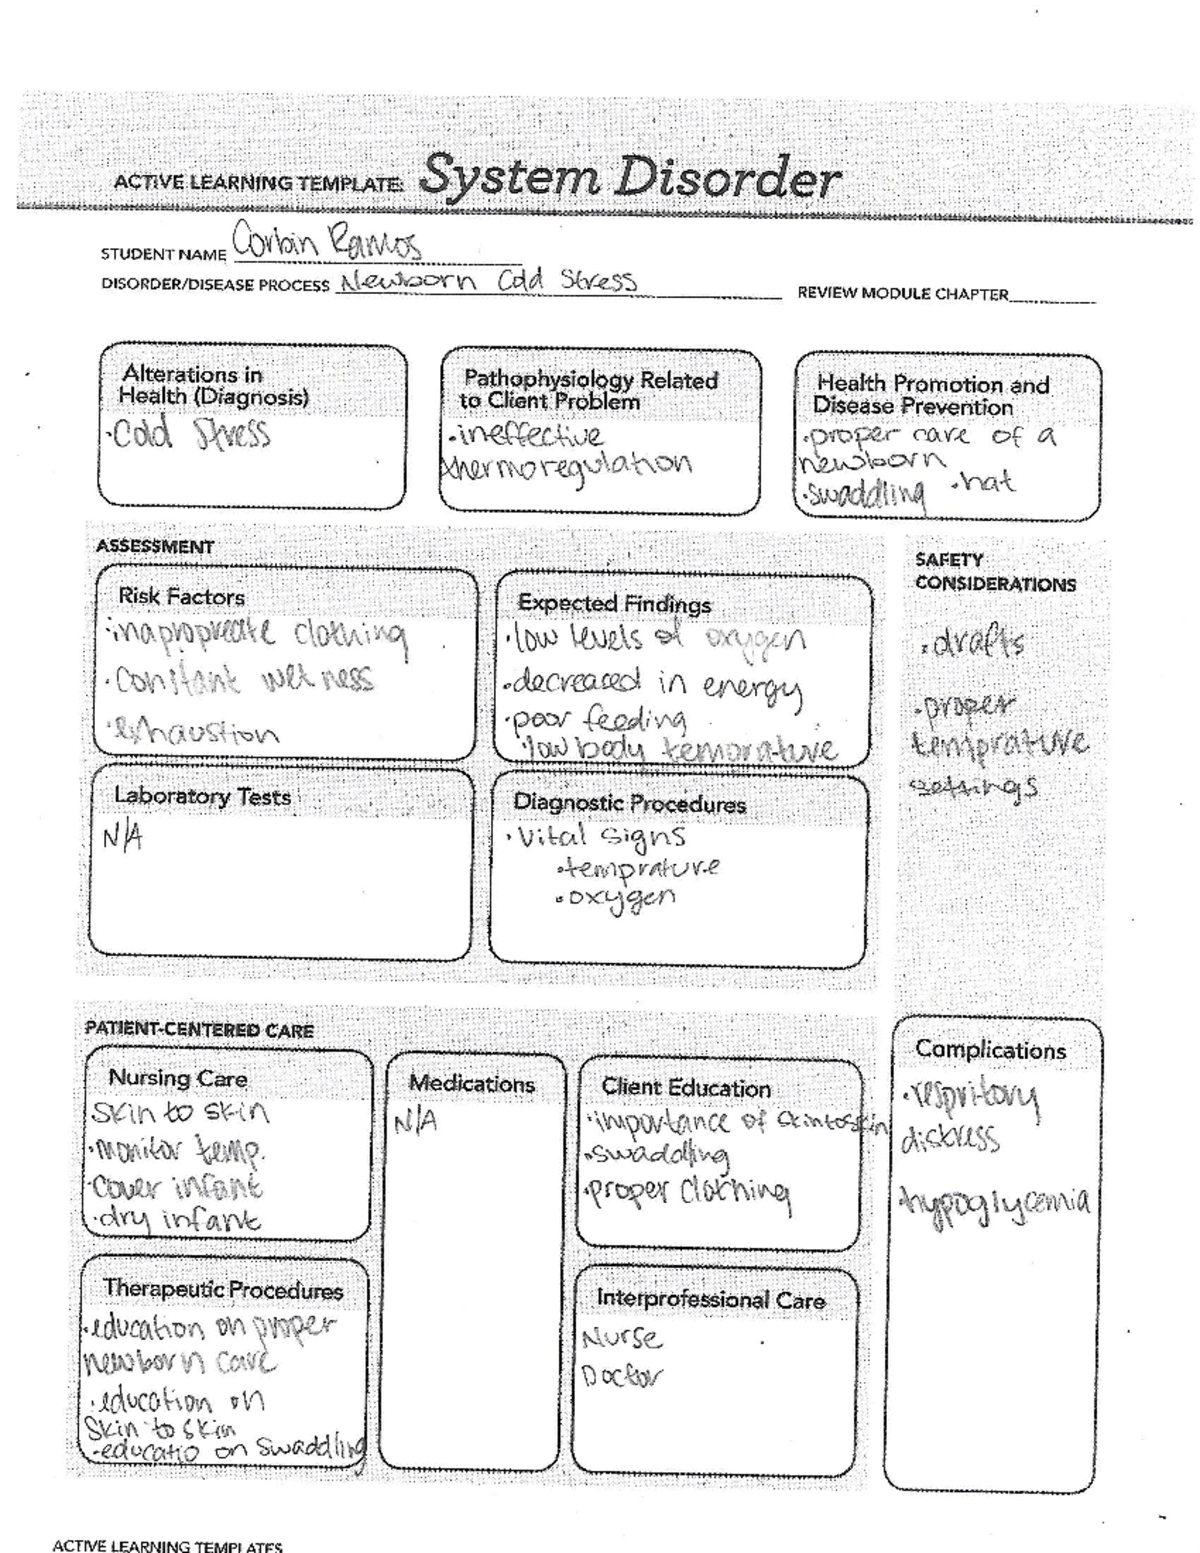 ACTIVE LEARNING TEMPLATE: System Disorder
STUDENT NAME Corbin Ramos
DISORDER/DISEASE PROCESS Newborn Cold Stress
REVIEW MODULE CHAPTER
Alterations in
Health (Diagnosis)
·Cold Stress
Pathophysiology Related
to Client Problem
·ineffective
thermoregulation
Health Promotion and
Disease Prevention
·proper care of a
newborn
·swaddling ·hat
ASSESSMENT
Risk Factors
·inapropreate clothing
·constant wetness
·exhaustion
Expected Findings
·low levels of oxygen
·decreased in energy
·poor feeding
·low body temorature
Laboratory Tests
N/A
Diagnostic Procedures
·Vital signs
·temprature
·oxygen
SAFETY
CONSIDERATIONS
·drafts
·proper
temprature
settings
PATIENT-CENTERED CARE
Nursing Care
Skin to skin
·monitor temp.
·cover infant
·dry infant
Medications
N/A
Client Education
·importance of skintoskin
·swaddling
·proper clothing
Therapeutic Procedures
·education on proper
newborn care
·education on
Skin to skin
·educatio on swaddling
Interprofessional Care
Nurse
Doctor
Complications
·respritory
diskress
·hypoglycemia
ACTIVE LEARNING TEMPLATES